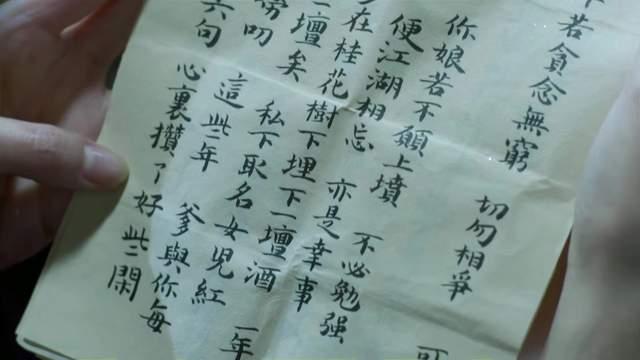 若貪念無窮 切勿相爭 可
你娘若不願上墳 不必勉强
便江湖相忘 亦是幸事
在桂花樹下埋下一壇酒 一年
一壇矣 私下取名女兒紅
叨 這些年 爹與你每
句 心裏攢了好些閑